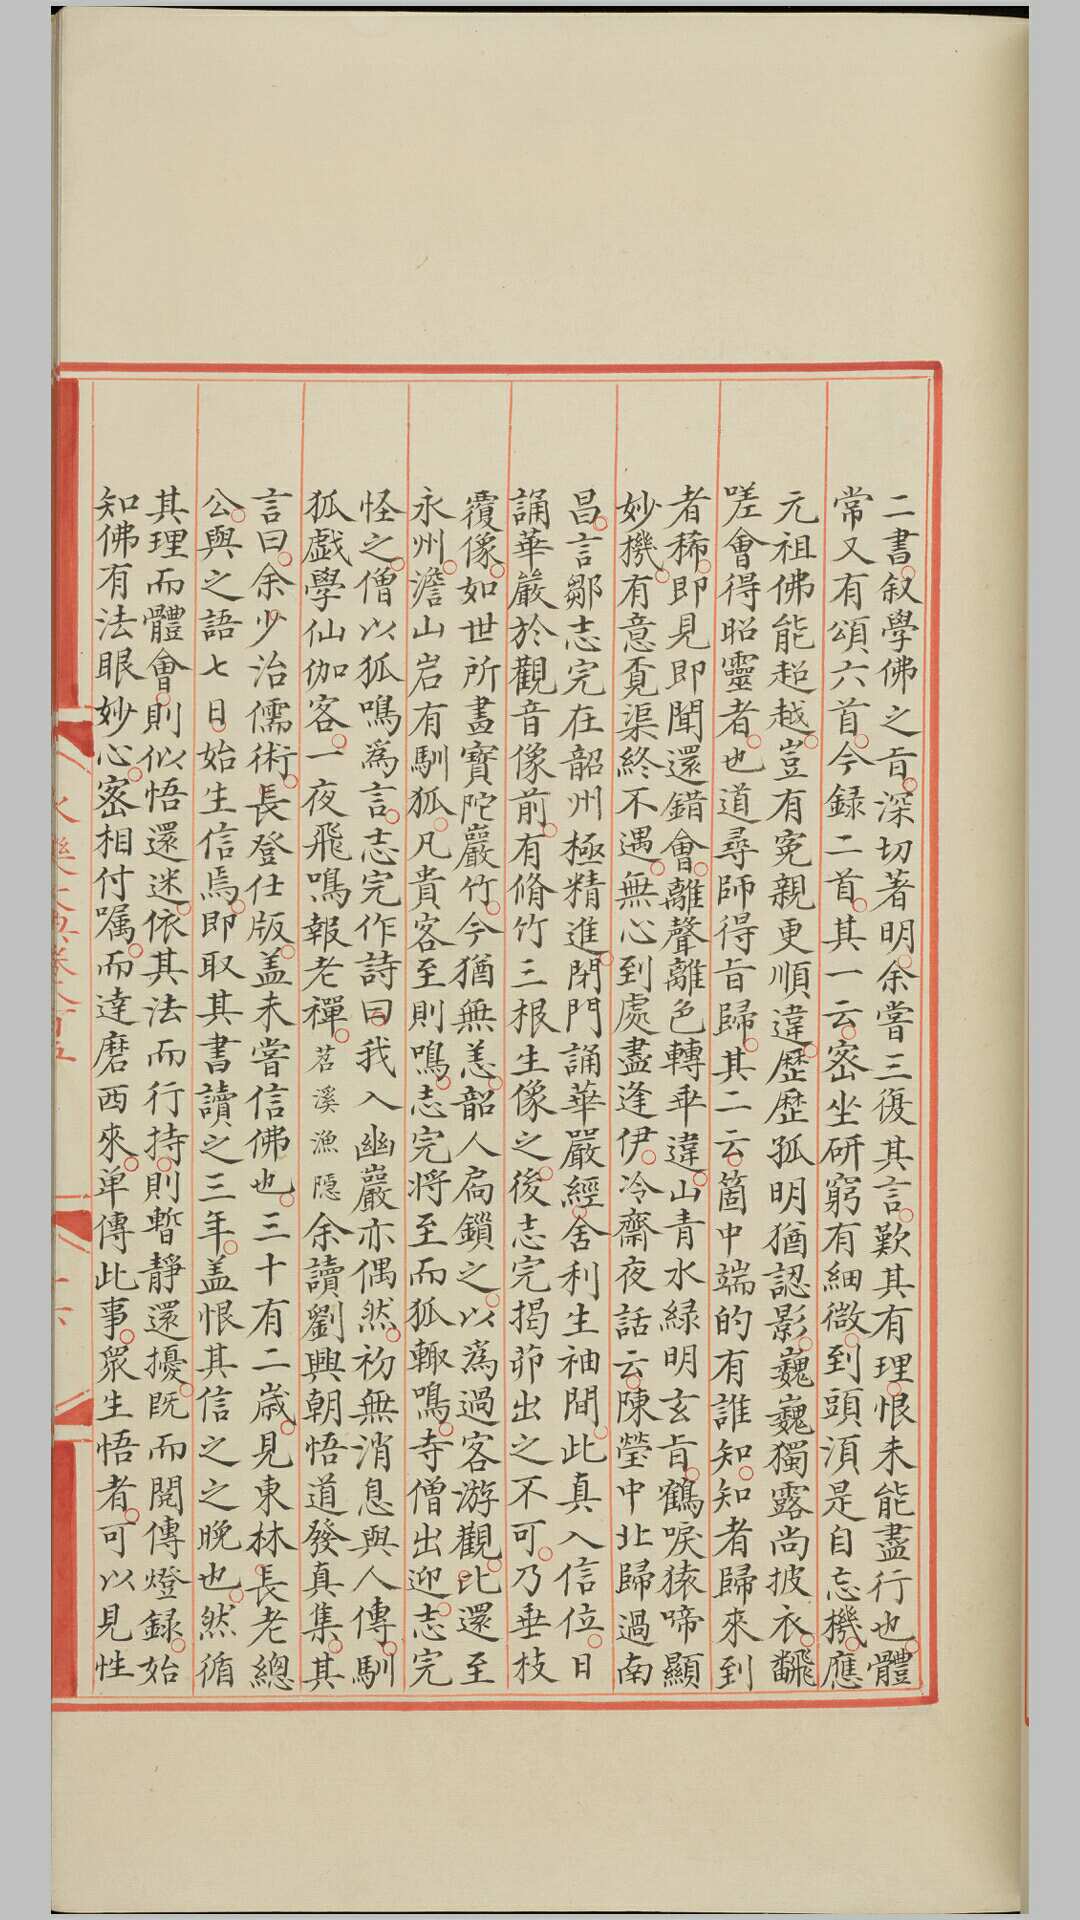 二書叙學佛之旨深切著明余嘗三復其言歎其有理恨未能盡行也體
常又有頌六首今録二首其一云宻坐研窮有細微到頭湏是自忘機應
元祖佛能超越豈有寃親更順違歷歷孤明猶認影巍巍獨露尚披衣飜
嗟會得昭靈者也道尋師得旨歸其二云箇中端的有誰知知者歸來到
者稀即見即聞還錯會離聲離色轉乖違山青水緑明玄旨鶴唳猿啼顯
妙機有意覔渠終不遇無心到處盡逢伊冷齋夜話云陳瑩中北歸過南
昌言鄒志完在韶州極精進閉門誦華嚴經舍利生袖間此真入信位日
誦華嚴於觀音像前有脩竹三根生像之後志完揭茆出之不可乃垂枝
覆像如世所畫寶陀巖竹今猶無恙韶人扄鎖之以為過客游觀比還至
永州澹山岩有馴狐凡貴客至則鳴志完将至而狐輙鳴寺僧出迎志完
怪之僧以狐鳴為言志完作詩曰我入幽巖亦偶然初無消息與人傳馴
狐戲學仙伽客一夜飛鳴報老禪苕溪漁隠余讀劉興朝悟道發真集其
言曰余少治儒術長登仕版盖未嘗信佛也三十有二歲見東林長老緫
公與之語七日始生信焉即取其書讀之三年盖恨其信之之晚也然循
其理而體會則似悟還迷依其法而行持則暫靜還擾既而閲傳燈録始
知佛有法眼妙心宻相付嘱而達磨西來单傳此事眾生悟者可以見性